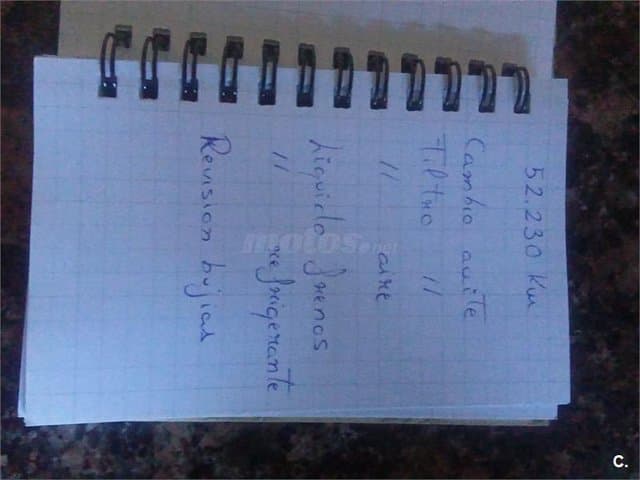 52.230 Km
Cambio aceite
Filtro "
" aire
Liquido frenos
" refrigerante
Revision bujias
motos.net
C.